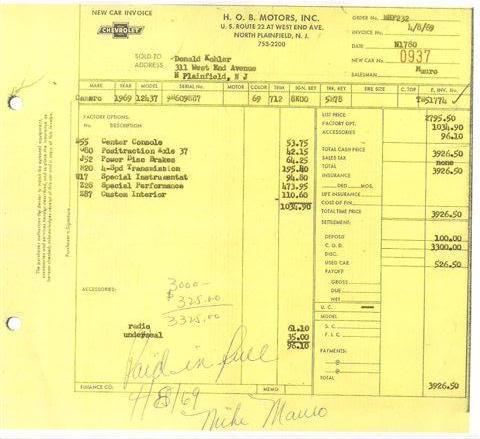 NEW CAR INVOICE
CHEVROLET
H. O. B. MOTORS, INC.
U. S. ROUTE 22 AT WEST END AVE.
NORTH PLAINFIELD, N. J.
753-2200
ORDER No. MHF232
INVOICE No. 4/8/69
DATE N1780
NEW CAR No. 0937
SALESMAN Mauro
SOLD TO Donald Kohler
ADDRESS 311 West End Avenue
N Plainfield, N J
MAKE YEAR MODEL SERIAL No. MOTOR COLOR TRIM IGN. KEY TRK. KEY TIRE SIZE C. TOP F. INV. No.
Camaro 1969 12437 9N609887 69 712 8K00 5H78 T#51774
FACTORY OPTIONS:
No. DESCRIPTION
D55 Center Console 53.75
G80 Positraction Axle 37 42.15
J52 Power Disc Brakes 64.25
M20 4-Spd Transmission 195.40
U17 Special Instrumentat 94.80
Z28 Special Performance 473.95
Z87 Custom Interior 110.60
1034.90
LIST PRICE 2795.50
FACTORY OPT. 1034.90
ACCESSORIES 96.10
TOTAL CASH PRICE 3926.50
SALES TAX none
TOTAL 3926.50
INSURANCE
DED. MOS.
LIFE INSURANCE
COST OF FIN.
TOTAL TIME PRICE 3926.50
SETTLEMENT:
DEPOSIT 100.00
C. O. D. 3300.00
DISC.
USED CAR 526.50
PAYOFF
GROSS
DUE
NET
U. C.
MODEL
S. C.
F. I. C.
PAYMENTS:
@
@
TOTAL 3926.50
Purchaser's Signature
ACCESSORIES:
3000-
$ 325.00
3325.00
radio 61.10
underseal 35.00
96.10
Paid in full
4/8/69
Mike Mauro
FINANCE CO. MEMO